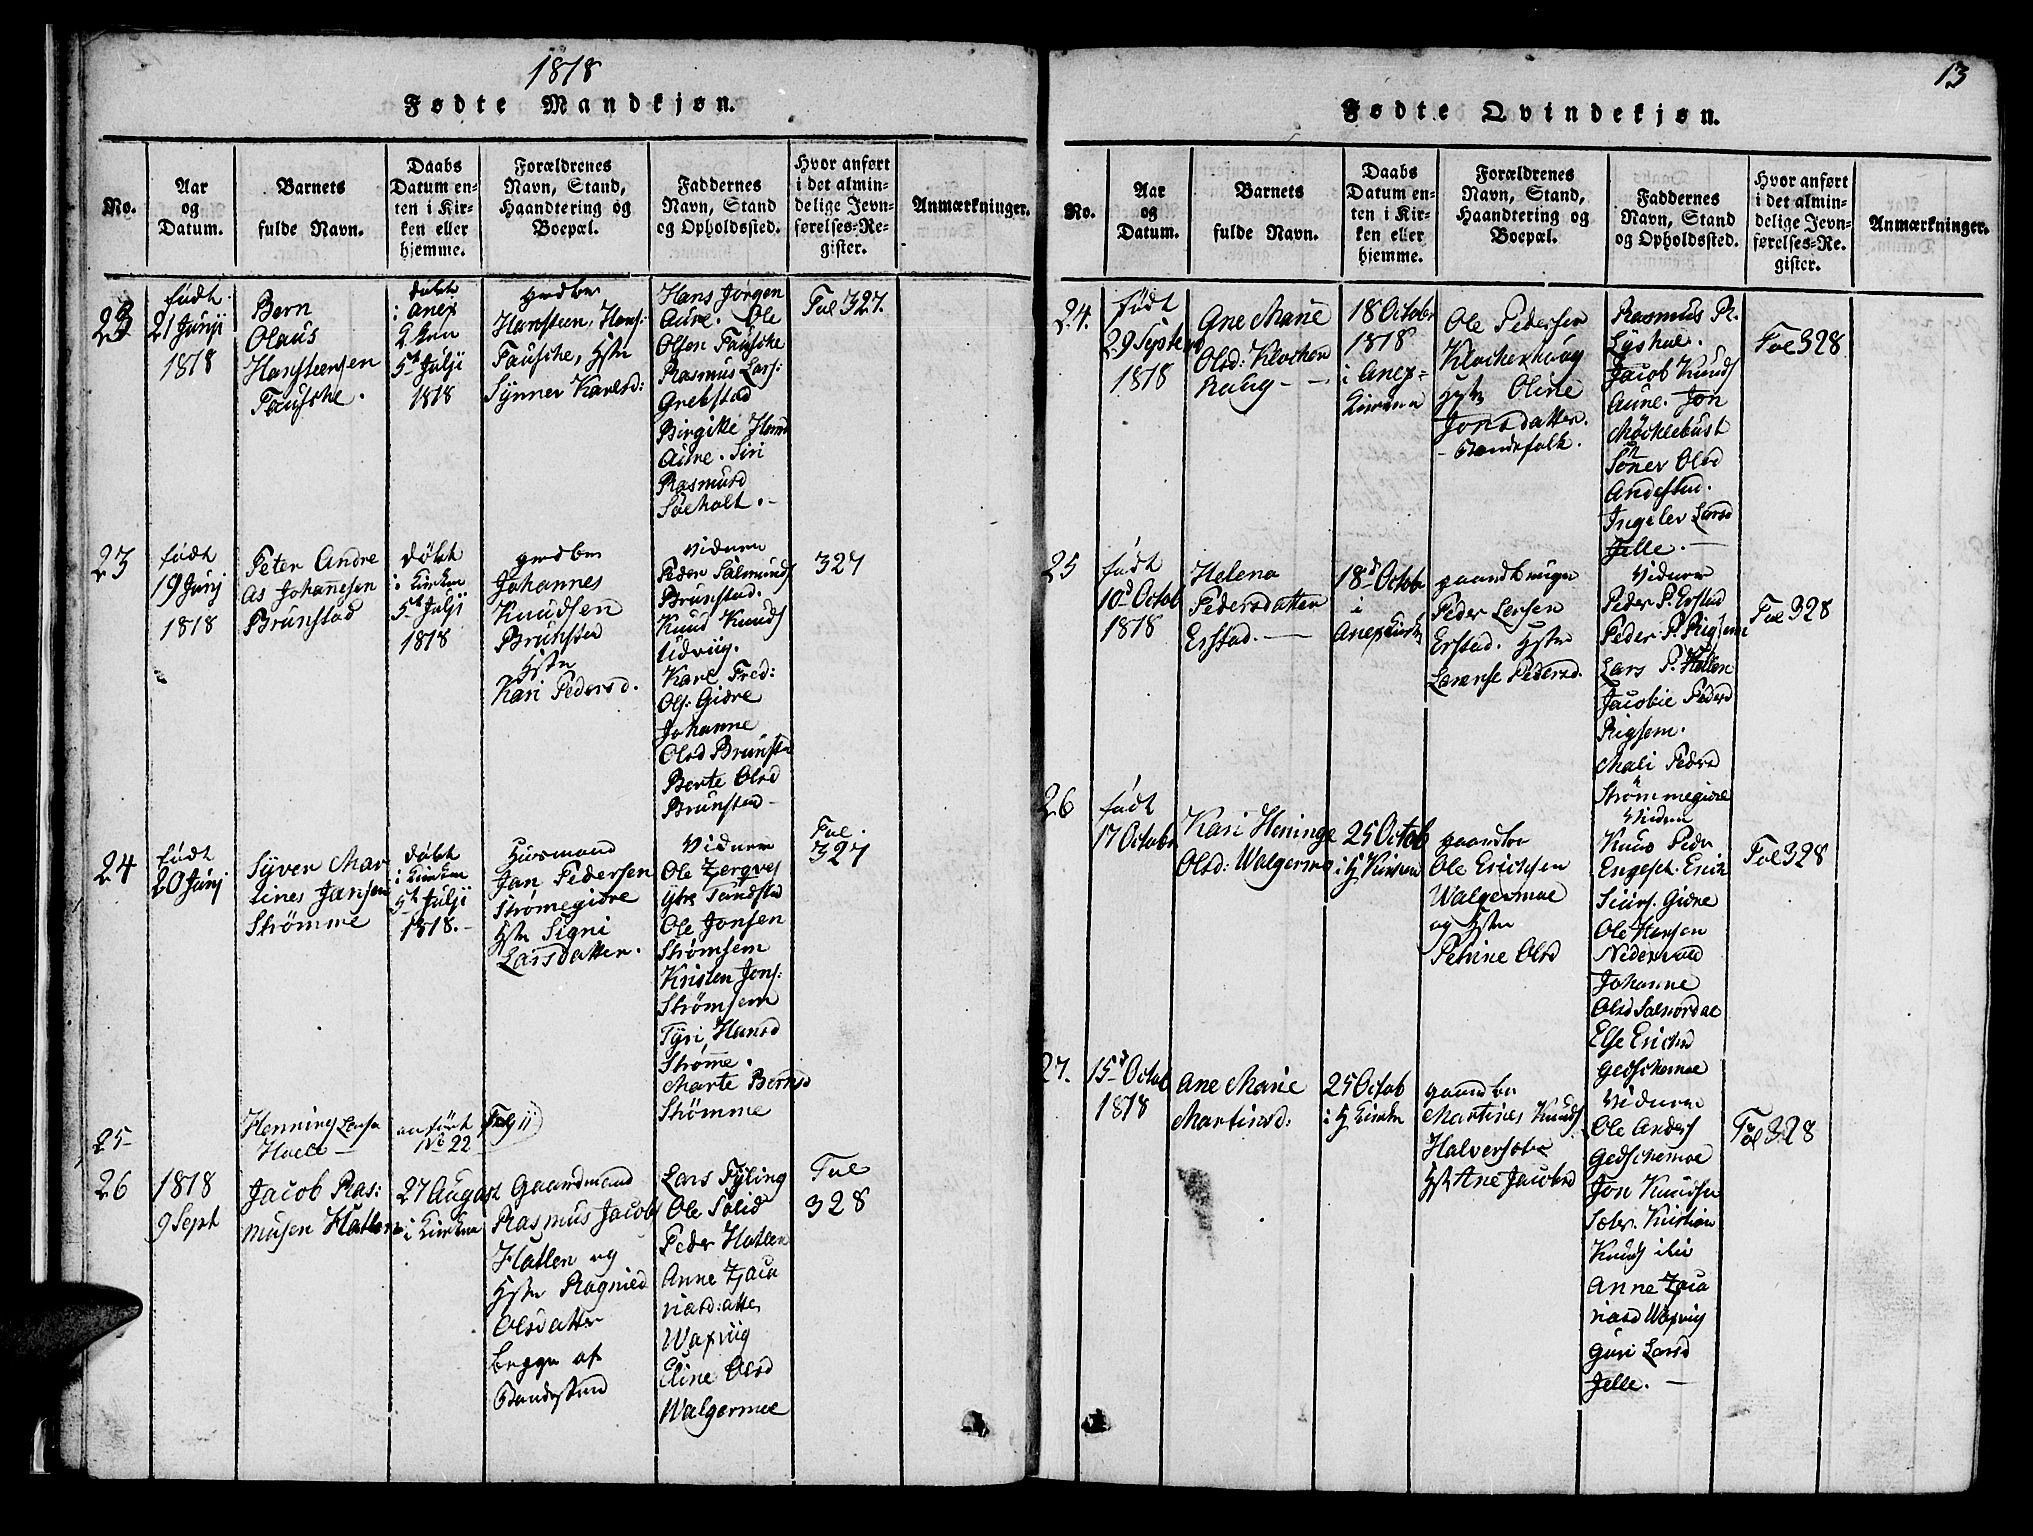 1818
Fødte Mandkjøn.
No.
Aar
og
Datum.
Barnets
fulde Navn.
Daabs
Datum en-
ten i Kir-
ken eller
hjemme.
Forældrenes
Navn, Stand,
Haandtering og
Boepæl.
Faddernes
Navn, Stand
og Opholdssted.
Hvor anført
i det almin-
delige Jevn-
førelses-Re-
gister.
Anmærkninger.
født
21 Junji
1818
Bern
Olaus
Hansteensen
Fausche.
døbt
i anex
5te Julji
1818
Hansteen Hans:
Fausche, Hstr
Synner Karlsd:
Hans Jørgen
Aure. Ole
Olsen Fausche
Rasmus Lars:
Grebstad
Birgitte Hansd
Aure. Siri
Rasmusd
Søeholt.
Fol 327.
23
født
19 Junj
1818
Peter Andre
as Johannesen
Brunstad
døbt
i Kirken
5te Julji
1818
Johannes
Knudsen
Brunstad
Hstr
Kari Pedersd.
Vidnere
Peder Salmunds
Brunstad.
Knud Knuds
Udviig.
Karl Fred:
Ols: Giære
Johanne
Olsd Brunsta
Berte Olsd
Brunstad
327
24
født
20 Junj
Syver Mar
tines Jansen
Strømme
døbt
i Kirken
5te Julji
1818.
Huusmand
Jan Pedersen
Strømegiære
Hstr Signi
Larsdatter.
Vidnere
Ole
Ytre Tandstad
Ole Jonsen
Strømsem
Kristen Jons:
Strømsem
Tyri Hansd
Strømme.
Marte Berntsd
Strømme
Fol.
327
25
Henning Larsen
Hole
anført
No 22
Fol 11
26
1818
9 Sept
Jacob Ras:
musen Hatlen
27 August
i Kirken
Gaardmand
Rasmus Jacobs
Hatlen og
Hstr Ragnild
Olsdatter
begge af
Bondestand
Lars Fyling
Ole Solid
Peder Hatlen
Anne Zaca
riasd:atter
Waxviig
Eline Olsd
Walgermoe
Fol
328
13
Fødte Qvindekjøn.
No.
Aar
og
Datum.
Barnets
fulde Navn.
Daabs
Datum en-
ten i Kir-
ken eller
hjemme.
Forældrenes
Navn, Stand,
Haandtering og
Boepæl.
Faddernes
Navn, Stand
og Opholdssted.
Hvor anført
i det almin-
delige Jevn-
førelses-Re.
gister.
Anmærkninger.
24.
født
29 Septemb
1818
Ane Marie
Olsd: Klocker
haug
18 Octobr
1818
i Anex-
Kirken
Ole Pedersen
Klockerhoug
Hstr Oline
Jonsdatter.
Bondefolk.
Rasmus R.
Lyshol.
Jacob Knuds
Aure. Jon
Møcklebust
Søner Olsd
Andestad.
Ingeler Larsd
Jelle.
Fol 328
25
født
10d Octob
1818
Helena
Pedersdatter
Erstad.
18d Octob
i
Anexkirke
Gaardbruger
Peder Larsen
Erstad. Hstr
Larense Pedersd.
Vidner
Peder P. Erstad
Peder P. Rigsem
Lars P. Hatlen
Jacobie Pedersd
Rigsem.
Mali Pedersd
Strømmegiære
Fol 328
26
født
17 Octobr
Kari Heninge
Olsd: Walgermo
25 Octob
i H Kirken
Ole Erichsen
Walgermoe
og Hstr
Petrine Olsd
Vidner
Knud Peder
Engeset. Erich
Siurs. Giære
Ole Hansen
Nedervold
Johanne
Olsd Solnordal
Else Erichsd
Gedschemoe
Fol 328
27.
15d Octob
1818
Ane Marie
Martinsd:
25 Octob
i H Kirken
Martines Knuds
Halversæter
Hstr Ane Jacobsd
Vidner
Ole Anders
Gedschemoe
Jon Knudsen
Sæter. Kristian
Knuds
Anne Zaca
riasd Waxvig
Guri Larsd
Jelle.
Fol 328